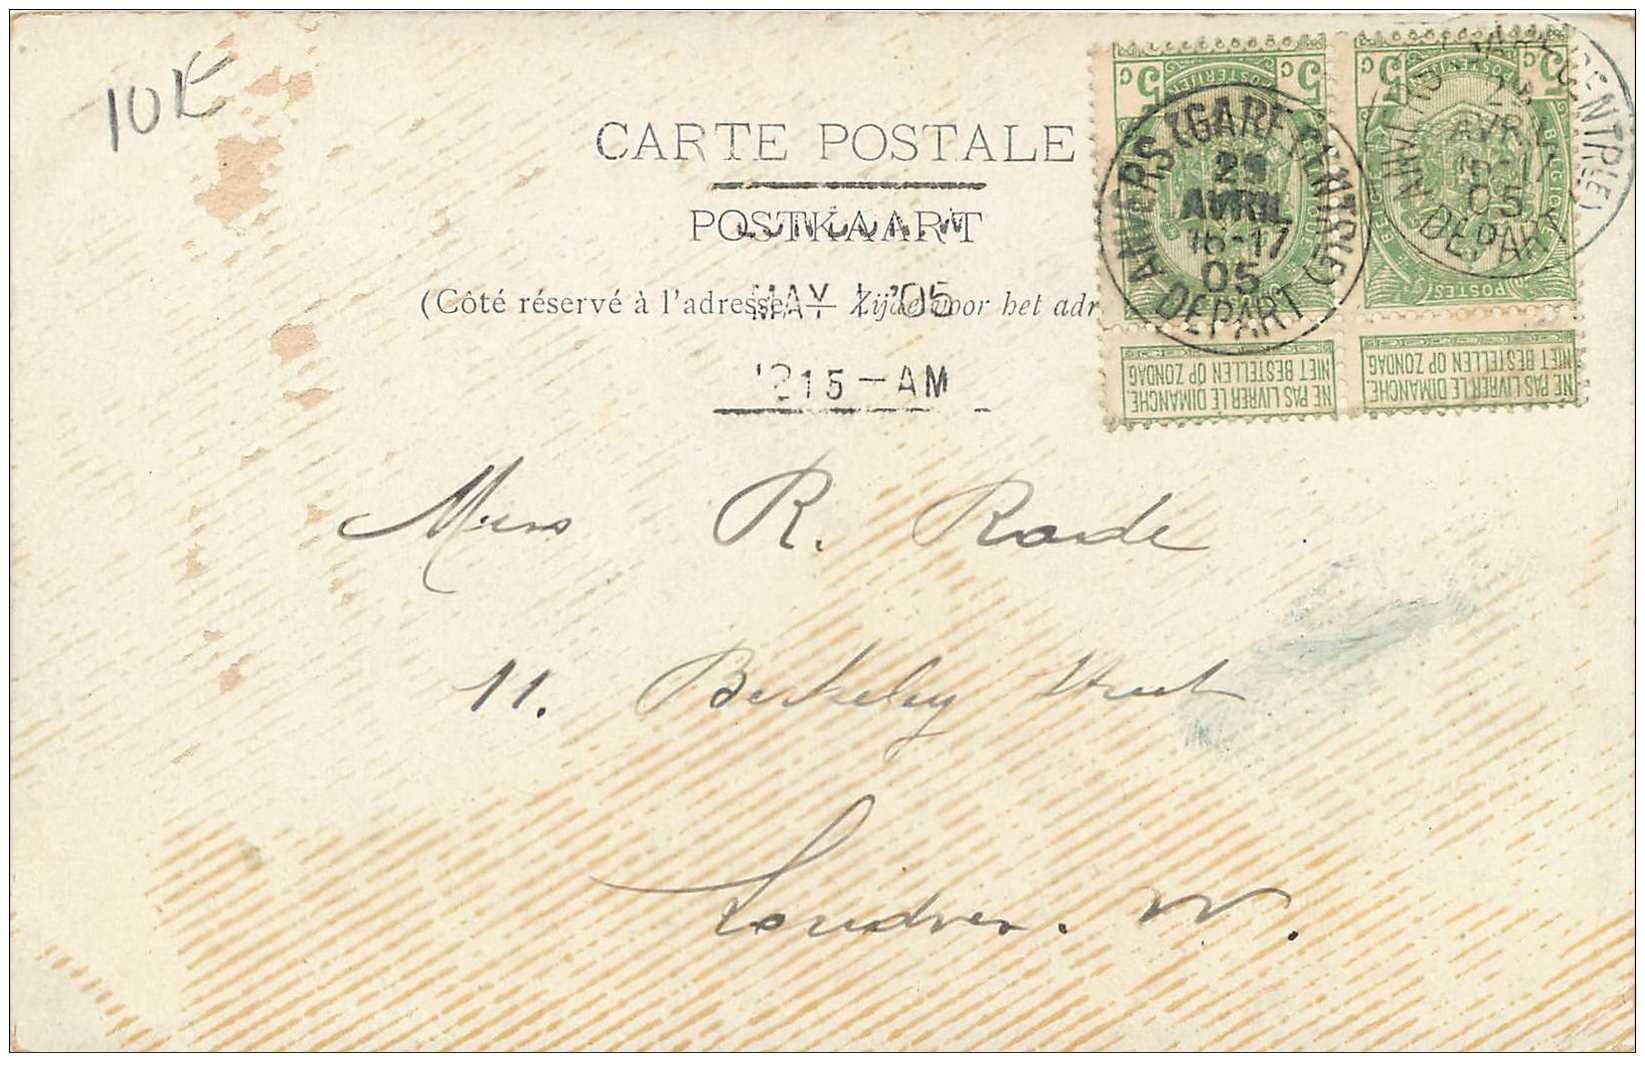 10 E
CARTE POSTALE
POSTKAART
LONDON.W
(Côté réservé à l'adresse — Zijde voor het adr
MAY 1 '05
1215-AM
ANVERS (GARE CENTRALE)
29
AVRIL
16-17
05
DEPART
ANVERS (GARE CENTRALE)
29
AVRIL
16-17
05
DEPART
5 c 5
POSTERIJEN
BELGIQUE
5 c 5
POSTERIJEN
BELGIË BELGIQUE
POSTES
NE PAS LIVRER LE DIMANCHE.
NIET BESTELLEN OP ZONDAG
NE PAS LIVRER LE DIMANCHE.
NIET BESTELLEN OP ZONDAG
Miss R. Rade
11. Berkeley Street
Londres. W.